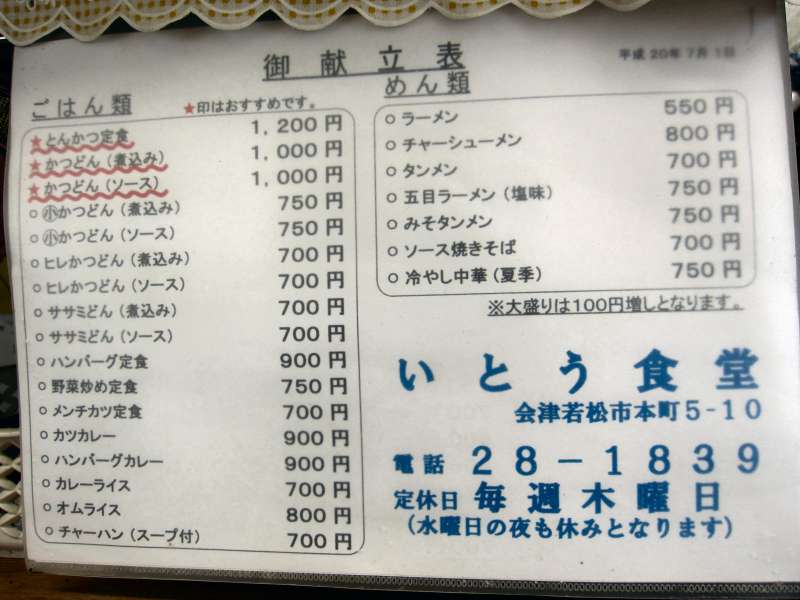 御献立表
平成20年7月1日
ごはん類
★印はおすすめです。
★とんかつ定食 1,200円
★かつどん(煮込み) 1,000円
★かつどん(ソース) 1,000円
○㋙かつどん(煮込み) 750円
○㋙かつどん(ソース) 750円
○ヒレかつどん(煮込み) 700円
○ヒレかつどん(ソース) 700円
○ササミどん(煮込み) 700円
○ササミどん(ソース) 700円
○ハンバーグ定食 900円
○野菜炒め定食 750円
○メンチカツ定食 700円
○カツカレー 900円
○ハンバーグカレー 900円
○カレーライス 700円
○オムライス 800円
○チャーハン(スープ付) 700円
めん類
○ラーメン 550円
○チャーシューメン 800円
○タンメン 700円
○五目ラーメン(塩味) 750円
○みそタンメン 750円
○ソース焼きそば 700円
○冷やし中華(夏季) 750円
※大盛りは100円増しとなります。
いとう食堂
会津若松市本町5-10
電話 28-1839
定休日 毎週木曜日
(水曜日の夜も休みとなります)